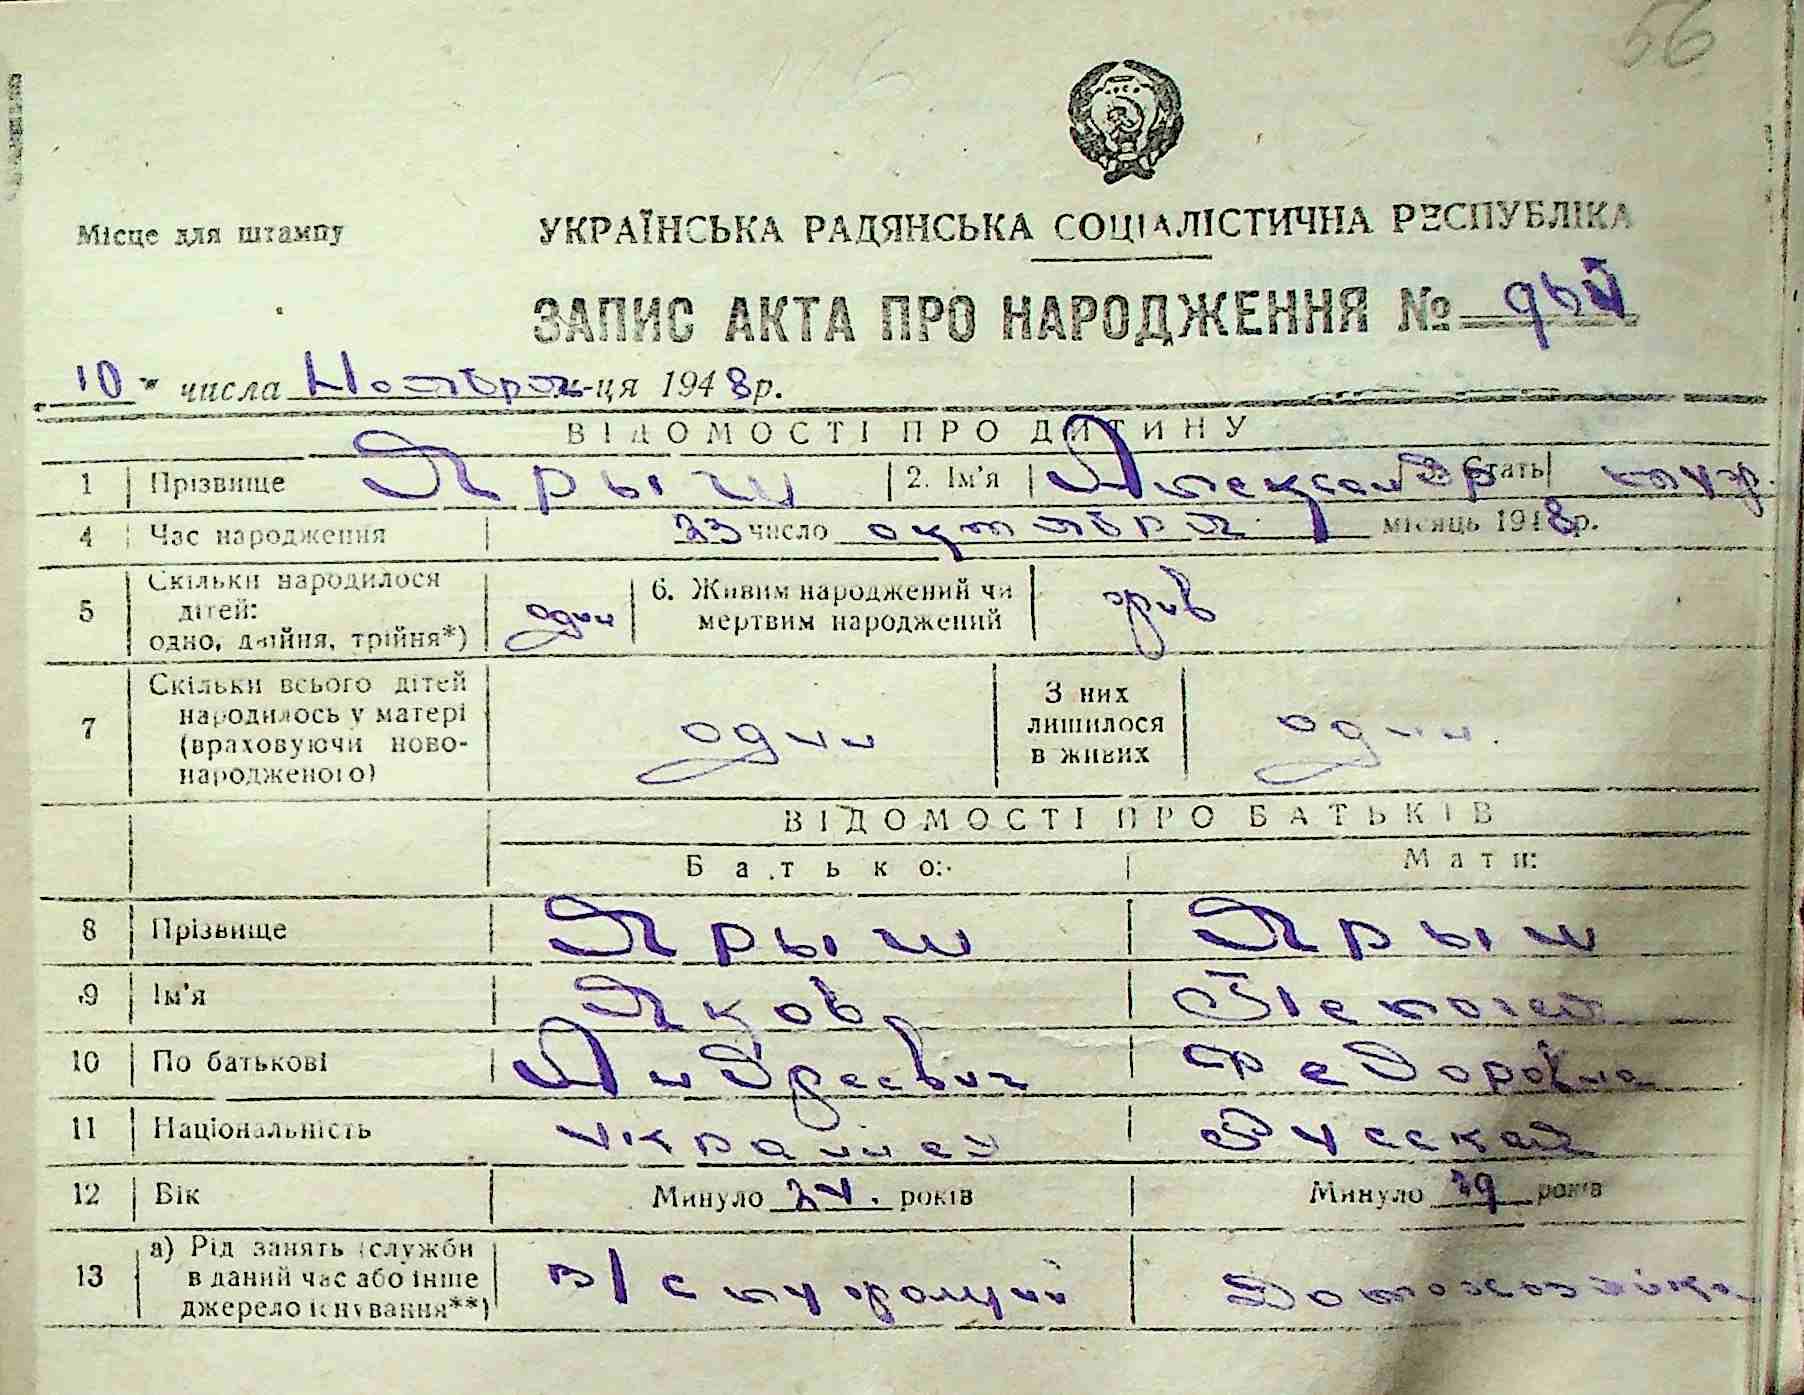 56
Місце для штампу
УКРАЇНСЬКА РАДЯНСЬКА СОЦІАЛІСТИЧНА РЕСПУБЛІКА
ЗАПИС АКТА ПРО НАРОДЖЕННЯ №
10 числа Ноября м-ця 1948 р.
ВІДОМОСТІ ПРО ДИТИНУ
1 Прізвище Ярыш 2. Ім'я Александр 3. Стать муж.
4 Час народження 23 число октября місяць 1948 р.
5 Скільки народилося дітей: одно, двійня, трійня*) один 6. Живим народжений чи мертвим народжений жив
7 Скільки всього дітей народилось у матері (враховуючи новонародженого) один З них лишилося в живих один.
ВІДОМОСТІ ПРО БАТЬКІВ
Батько: Мати:
8 Прізвище Ярыш Ярыш
9 Ім'я Яков
10 По батькові Андреевич Федоровна
11 Національність украинец Русская
12 Вік Минуло 24. років Минуло років
13 а) Рід занять (служби в даний час або інше джерело існування**) в/служащий Домохозяйка